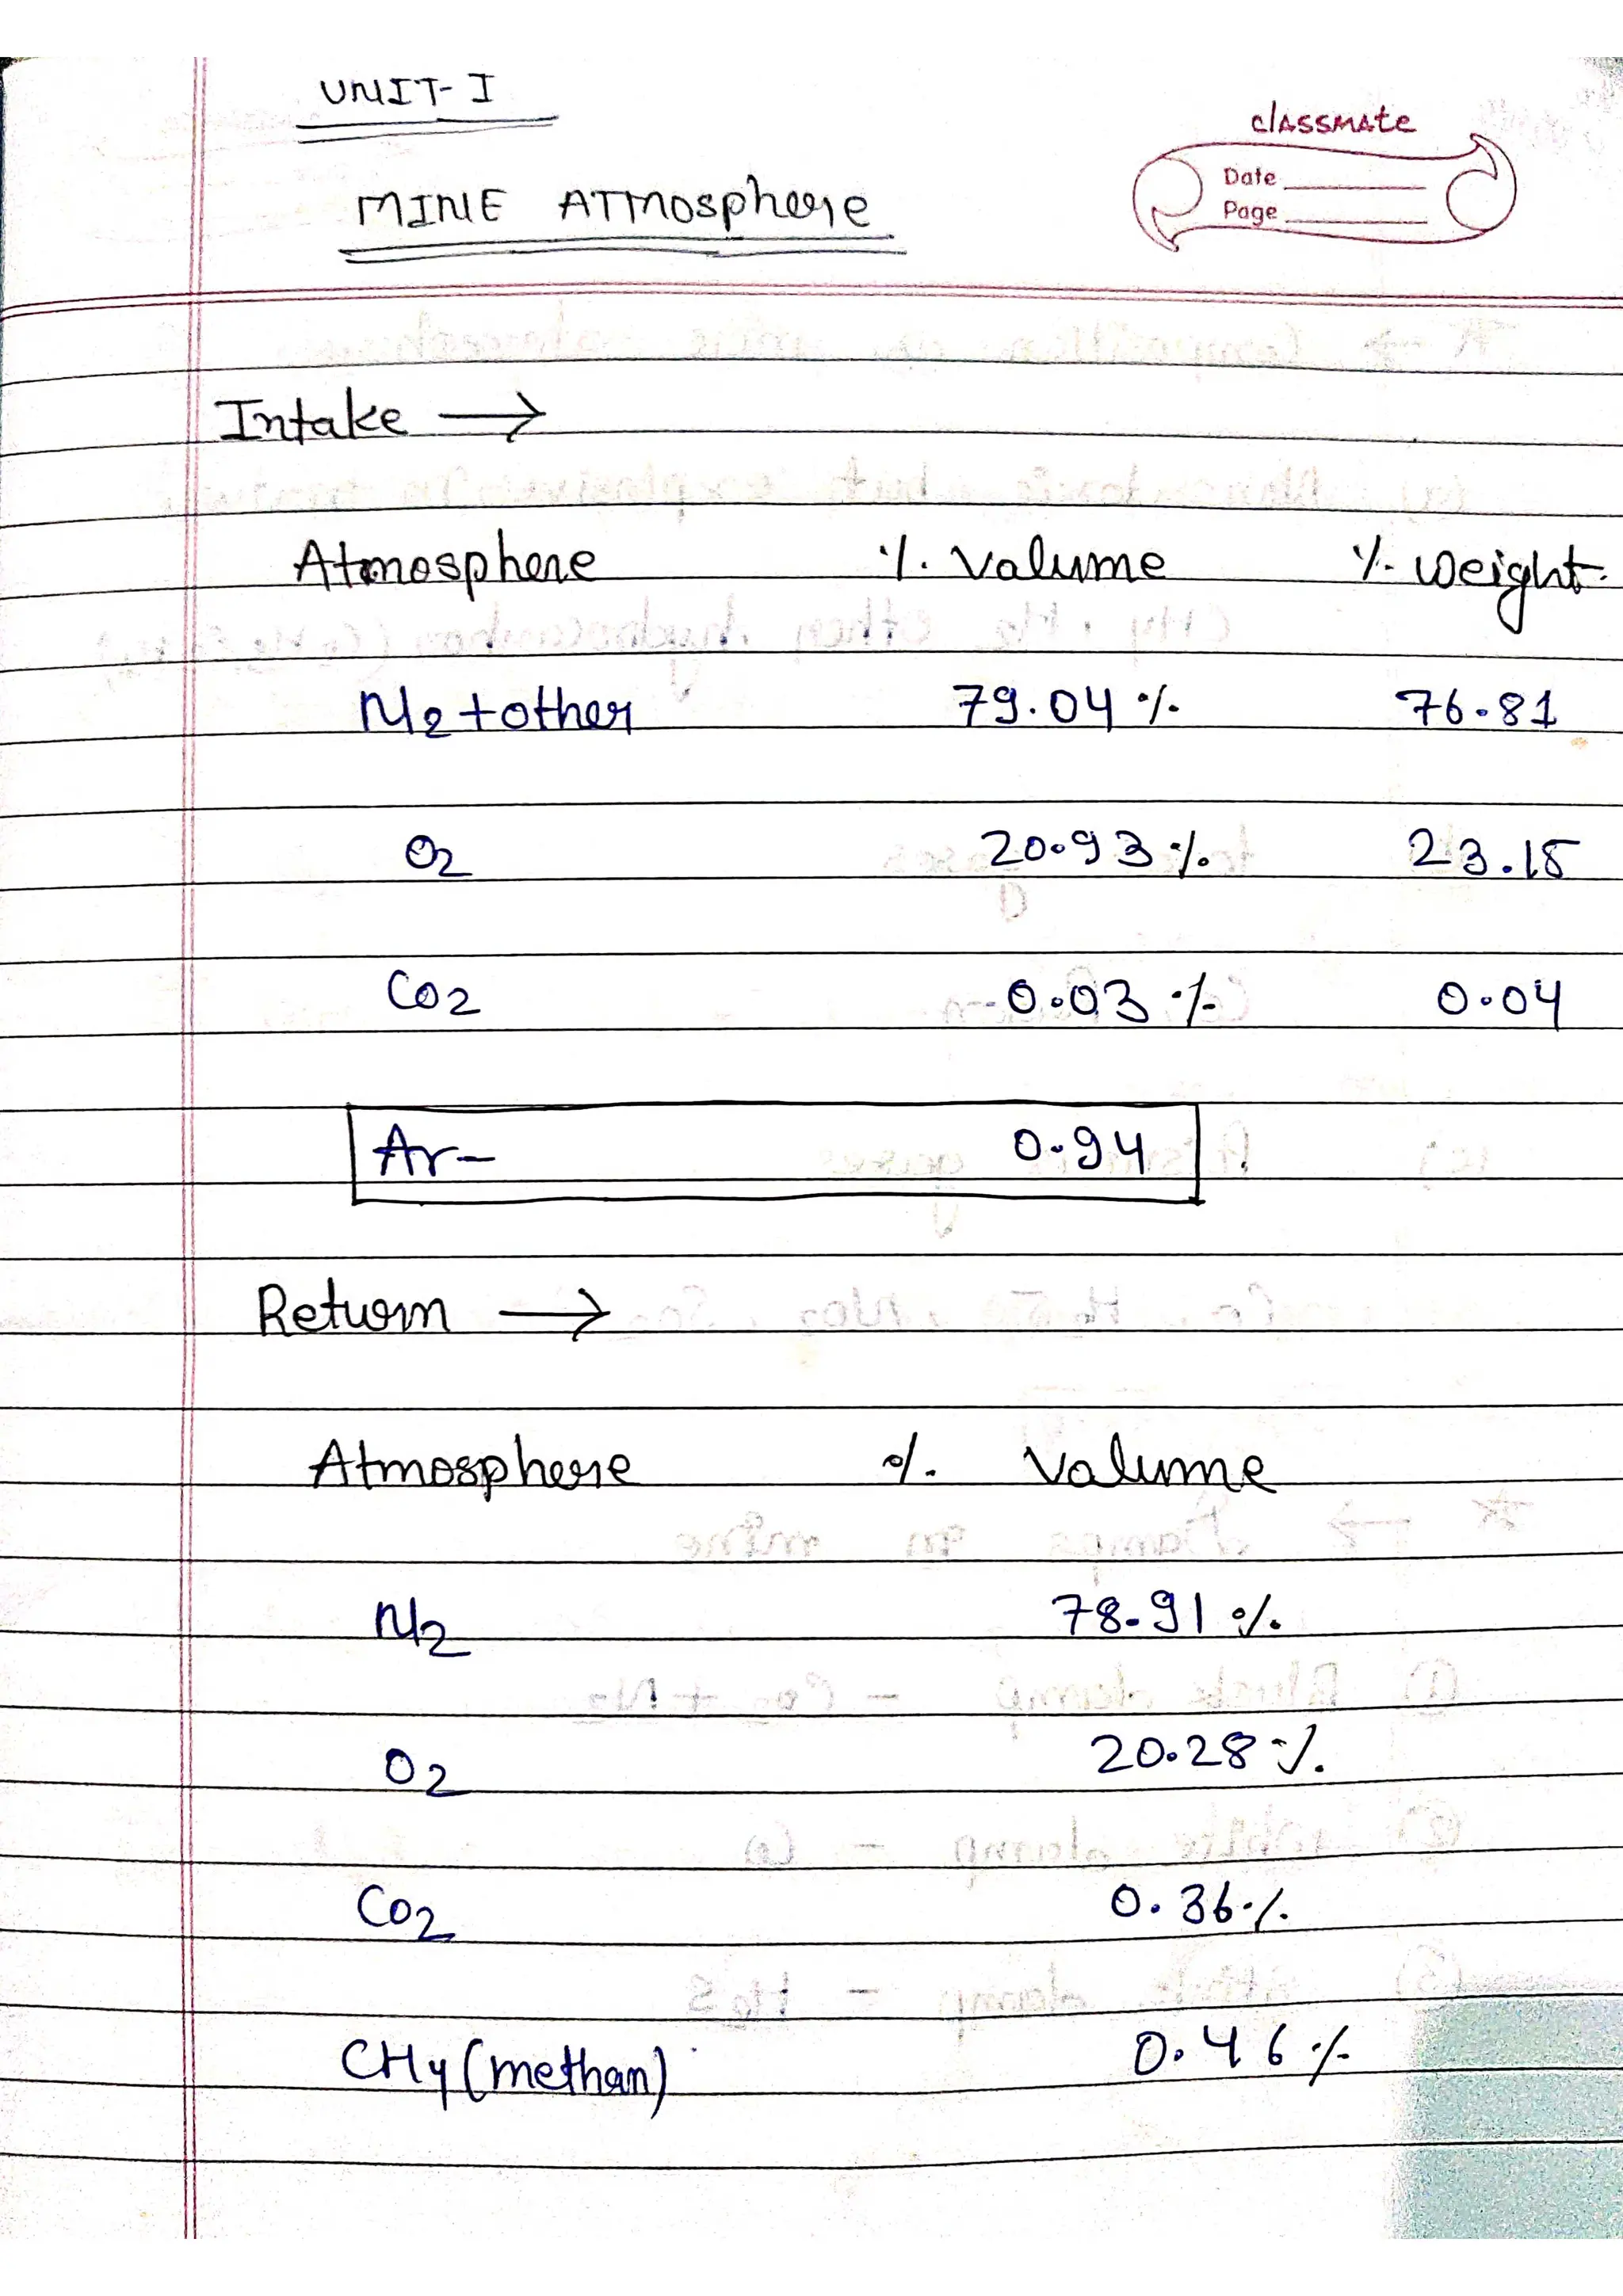 UNIT-I
classmate
Date
Page
MINE ATMosphere
Intake →
Atmosphere % Valume % weight.
N2+other 79.04 % 76.81
O2 20.93 % 23.15
CO2 0.03 % 0.04
Ar- 0.94
Return →
Atmosphere % Valume
N2 78.91 %
O2 20.28 %.
CO2 0.36 %
CH4 (methan) 0.46 %